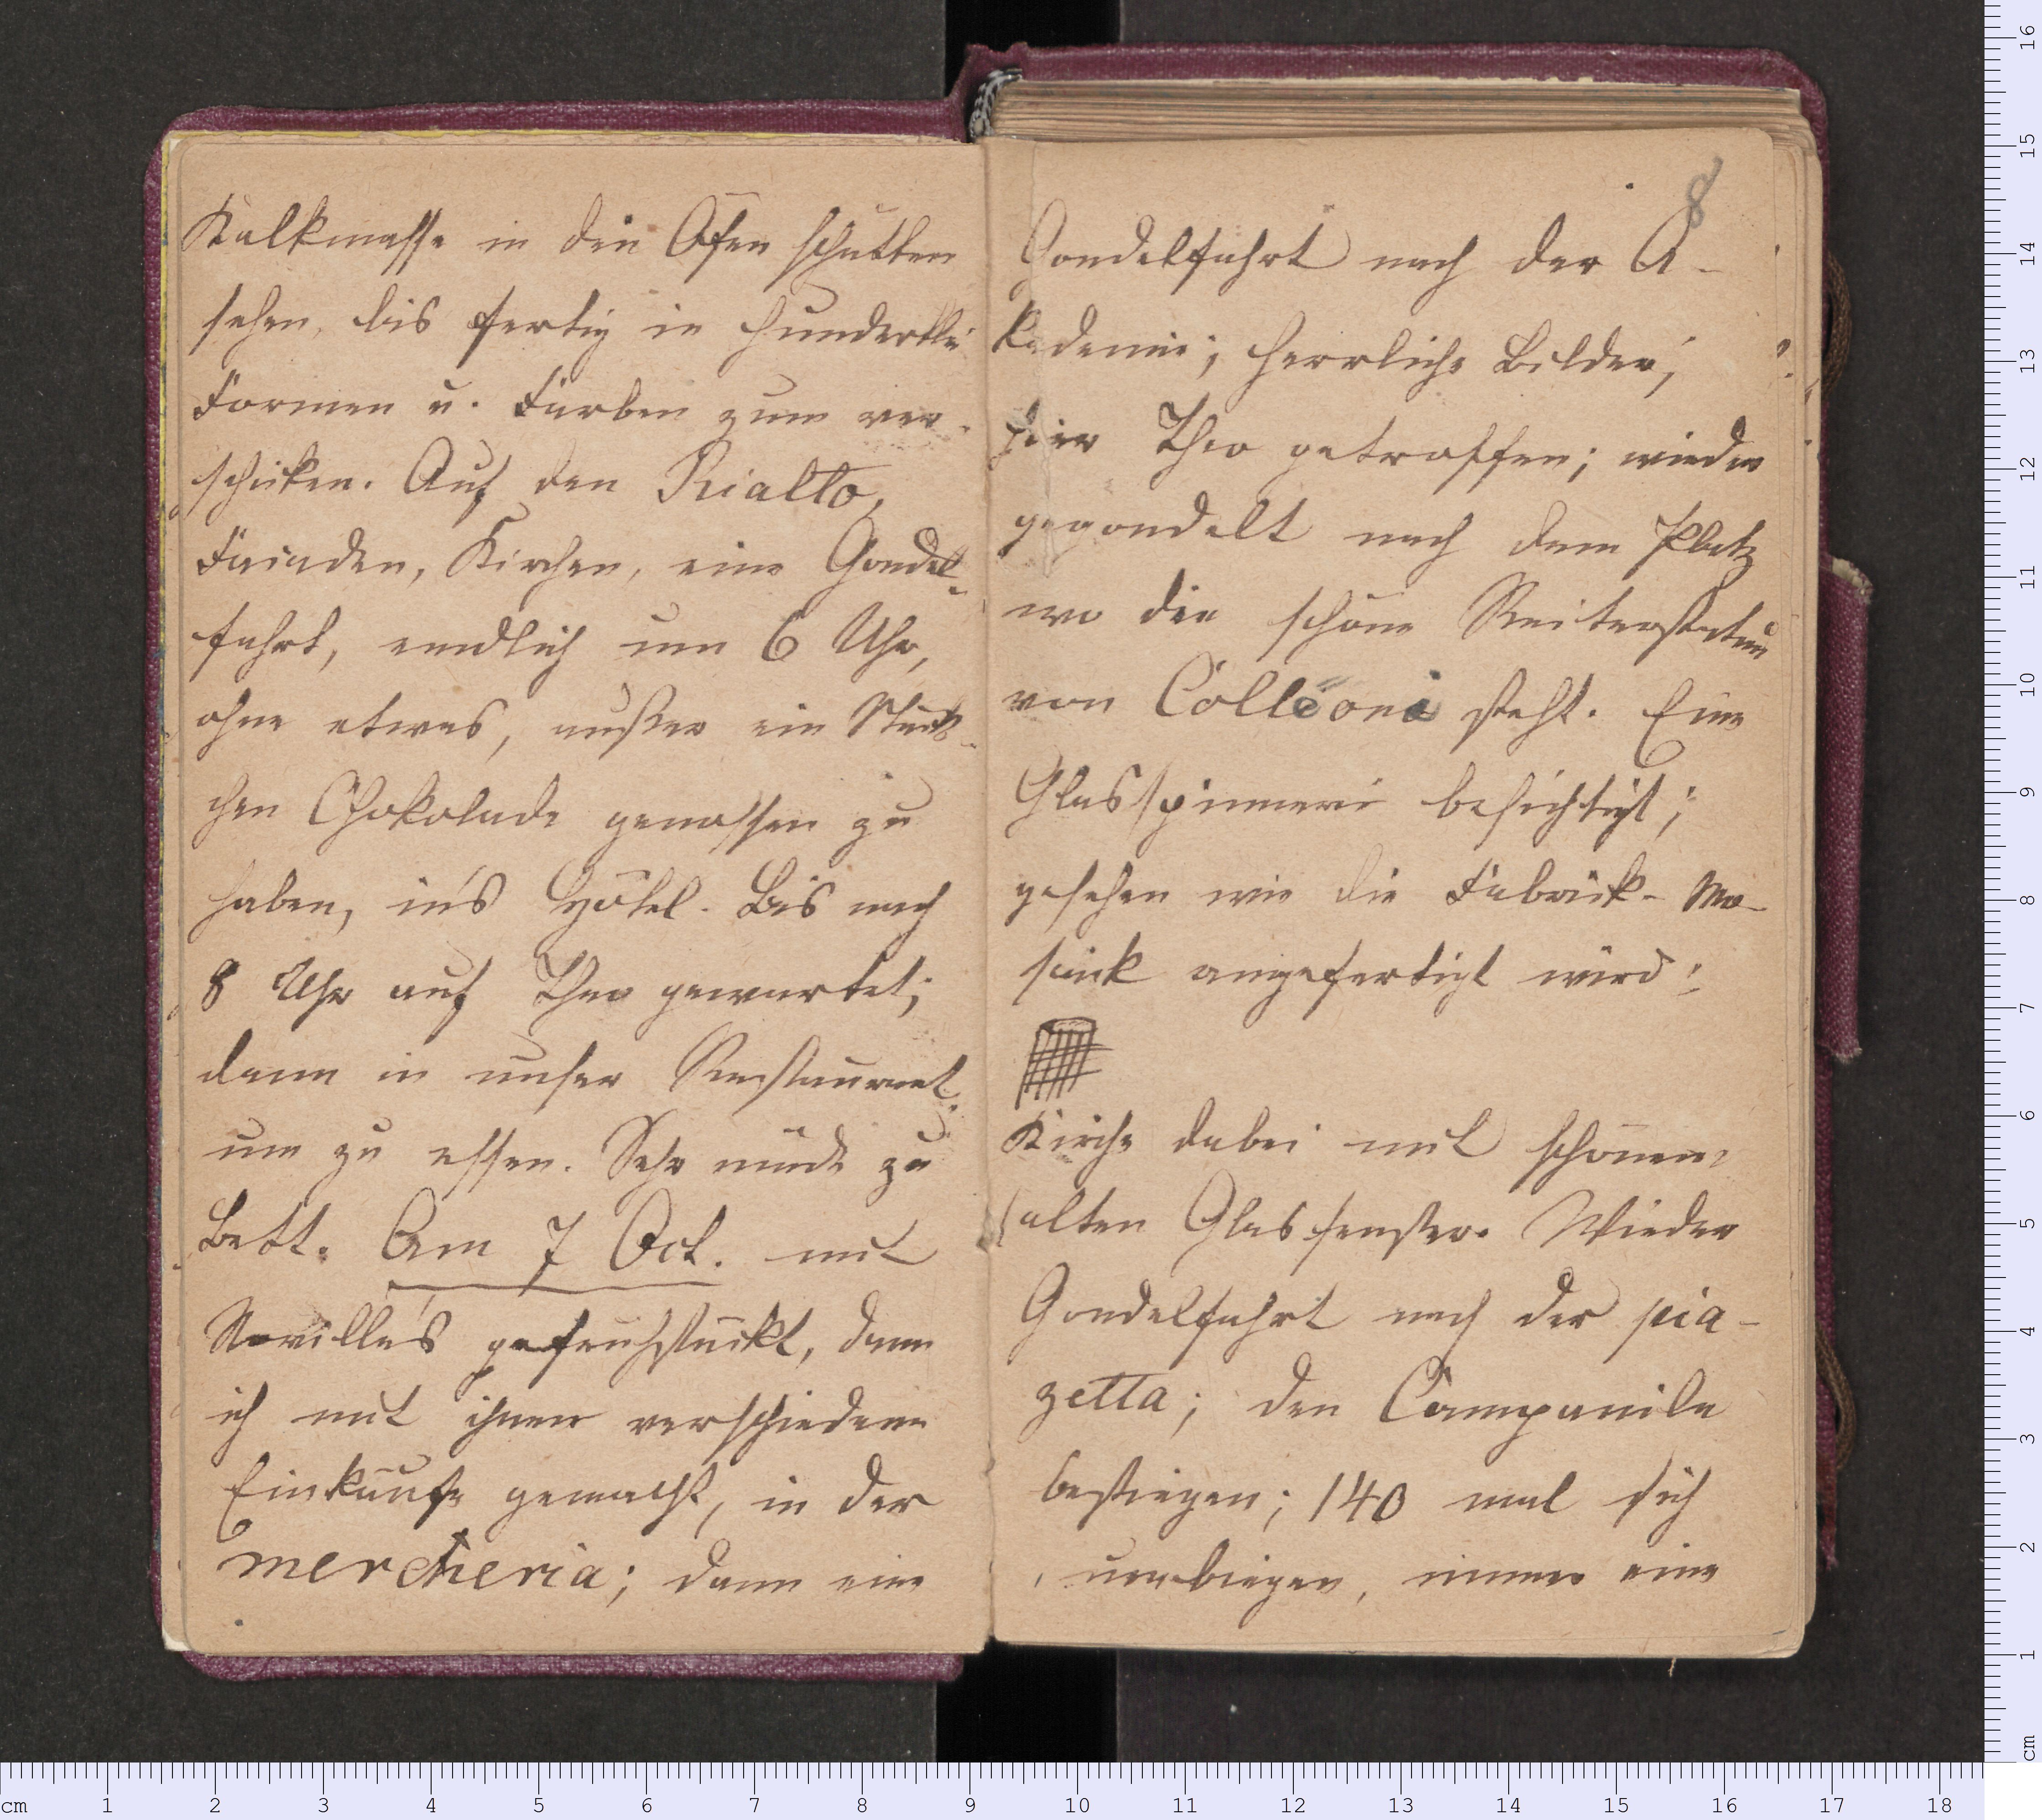 Kalkmasse in den Ofen schütten
sehen, bis fertig in hunderttlei
Formen u. Farben zum ver-
schicken. Auf den Rialto,
Kirchen, eine Gondel-
fahrt, endlich um 6 Uhr,
ohne etwas, außer ein Stück-
chen Chokolade genossen zu
haben, in's Hôtel. Bis nach
8 Uhr auf Theo gewartet;
dann in unser Restaurant
um zu essen. Sehr müde zu
Bett. Am 7 Oct. mit
Neville's gefrühstückt, dann
ich mit ihnen verschiedene
Einkäufe gemacht, in der
mercheria; dann eine
8
Gondelfahrt nach der A-
kademie; herrliche Bilder;
hier Theo getroffen; wieder
gegondelt nach dem Platz
wo die schöne Reiterstatue
von Colleoni steht. Eine
Glasspinnerei besichtigt;
gesehen wie die Fabrick-Mo-
saick angefertigt wird;
Kirche dabei mit schönem
alten Glasfenster. Wieder
Gondelfahrt nach der pia-
zetta; den Campanile
bestiegen; 140 mal sich
umbiegen, immer eine